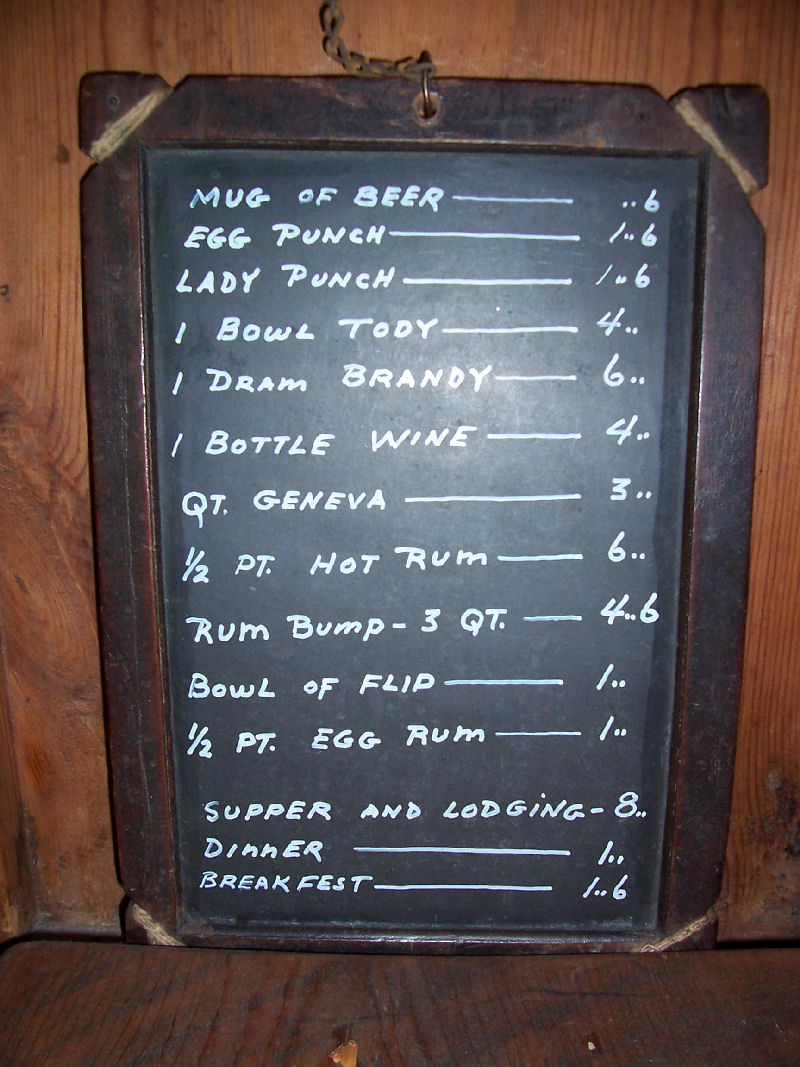 MUG OF BEER — ..6
EGG PUNCH — 1..6
LADY PUNCH — 1..6
1 BOWL TODY — 4..
1 DRAM BRANDY — 6..
1 BOTTLE WINE — 4..
QT. GENEVA — 3..
1/2 PT. HOT RUM — 6..
RUM BUMP - 3 QT. — 4..6
BOWL OF FLIP — 1..
1/2 PT. EGG RUM — 1..
SUPPER AND LODGING - 8..
DINNER — 1..
BREAKFEST — 1..6